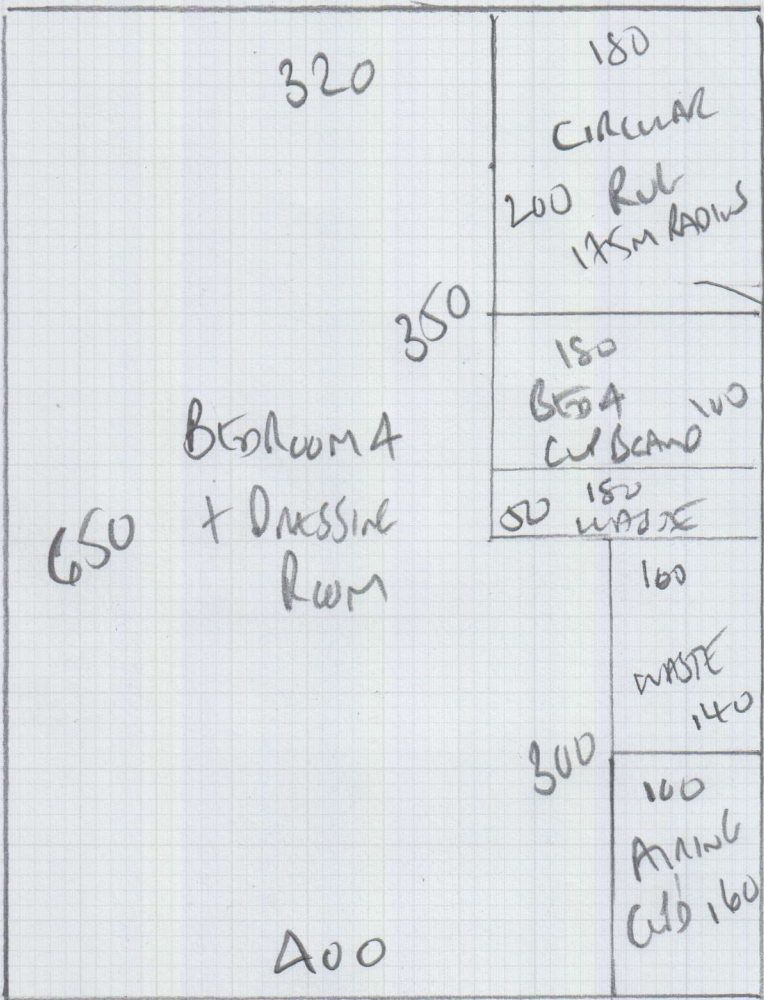 320
180
CIRCULAR
200 RUG
175M RADIUS
350
180
BED 4
CUPBOARD 100
BEDROOM 4
+ DRESSING
ROOM
650
180
50 WASTE
100
WASTE
140
300
100
AIRING
CUPD 160
400